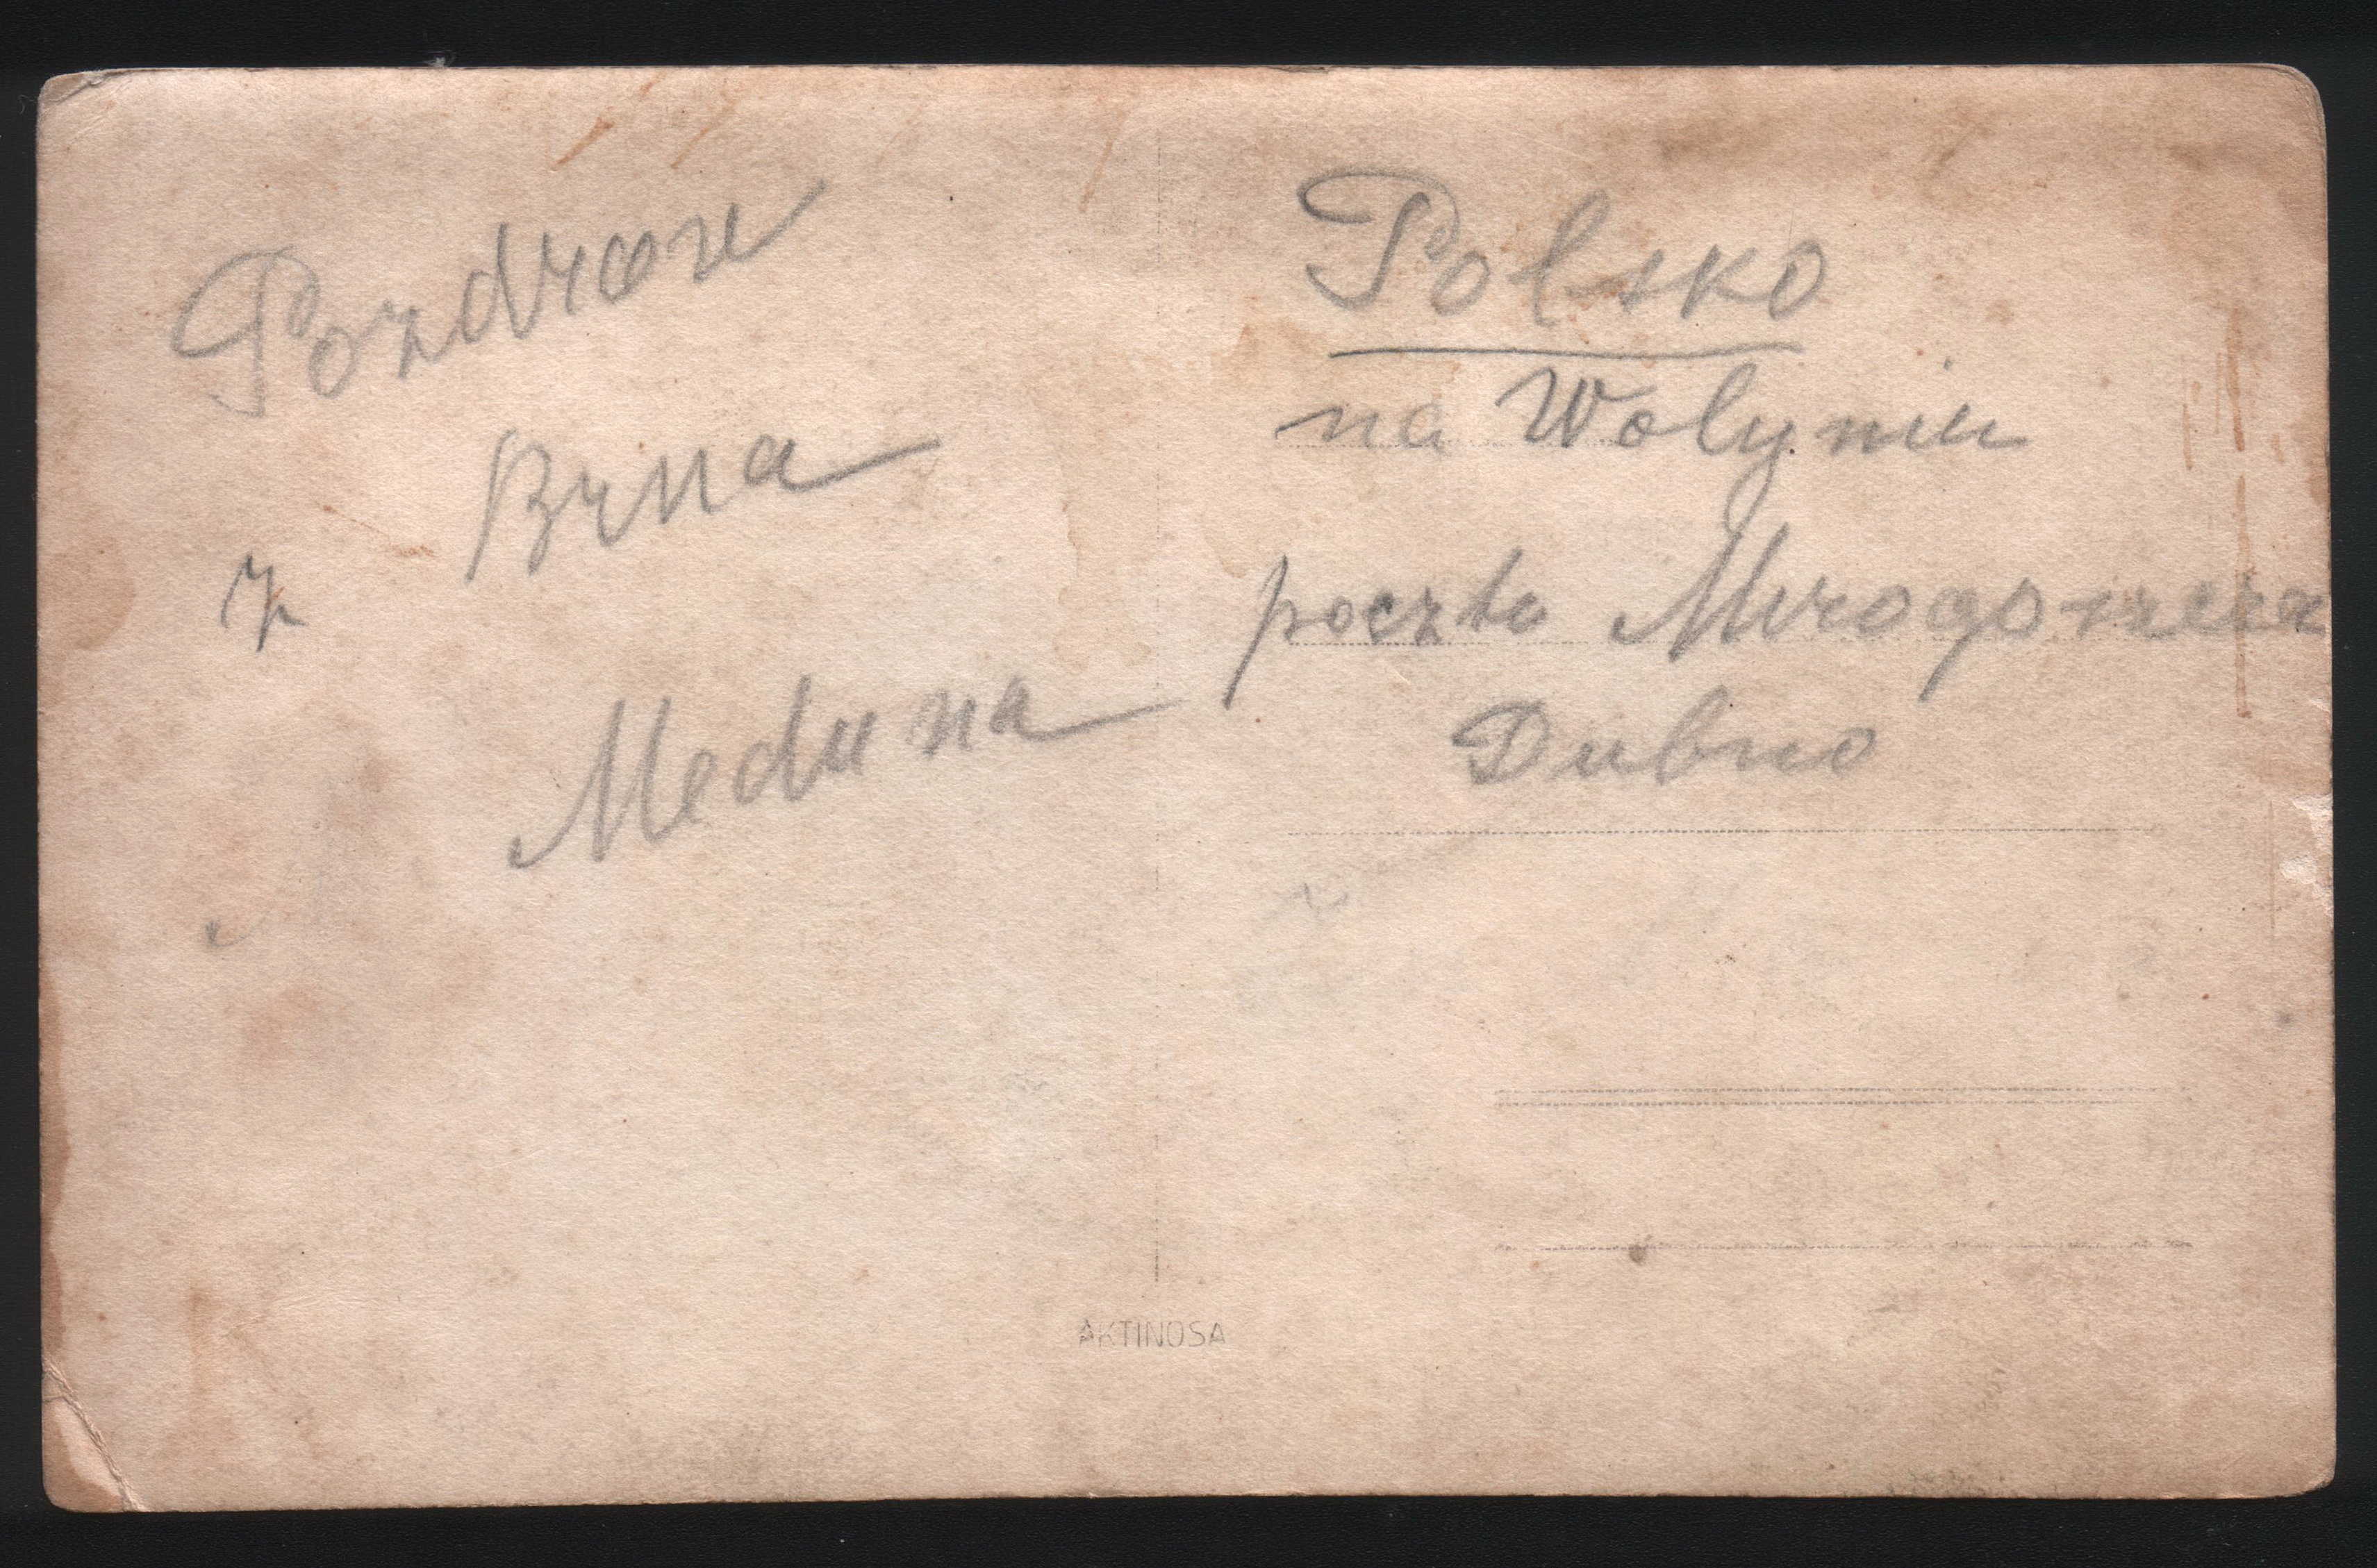 Pozdrav
Brna
z
Meduna
Polsko
na Wolyniu
poczta Mirogoszcza
Dubno
AKTINOSA